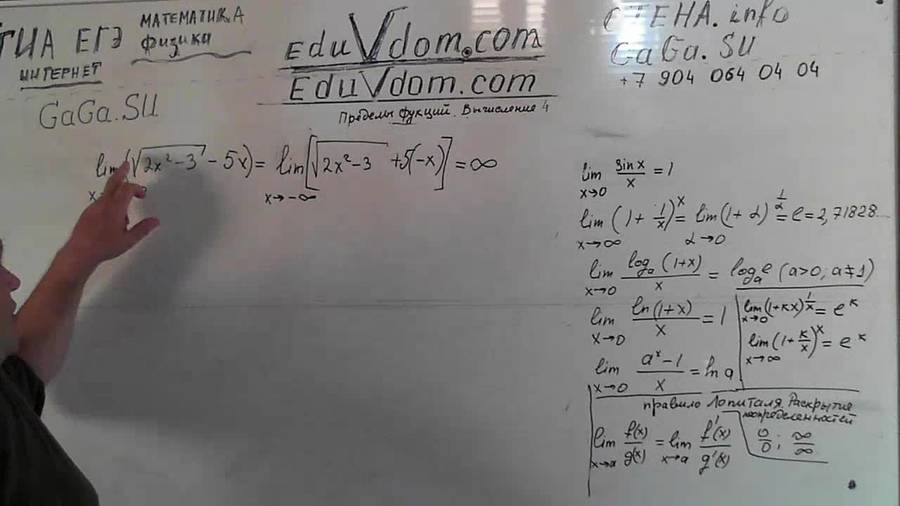 ГИА ЕГЭ МАТЕМАТИКА
физика
ИНТЕРНЕТ
GaGa.SU
EduVdom.com
EduVdom.com
Пределы фукций. Вычисление 4
СТЕНА.info
GaGa.SU
+7 904 064 04 04
lim (√(2x²-3) - 5x) = lim [√(2x²-3) + 5(-x)] = ∞
x→ x→-∞
lim sin x / x = 1
x→0
lim (1 + 1/x)^x = lim (1 + α)^(1/α) = e = 2,71828...
x→∞ α→0
lim log_a (1+x) / x = log_a e (a>0, a≠1)
x→0
lim ln(1+x) / x = 1
x→0
lim (1+кx)^(1/x) = e^к
x→0
lim (1+ к/x)^x = e^к
x→∞
lim (a^x - 1) / x = ln a
x→0
правило Лопиталя. Раскрытие
неопределенностей
lim f(x)/g(x) = lim f'(x)/g'(x)
x→a x→a
0/0 ; ∞/∞